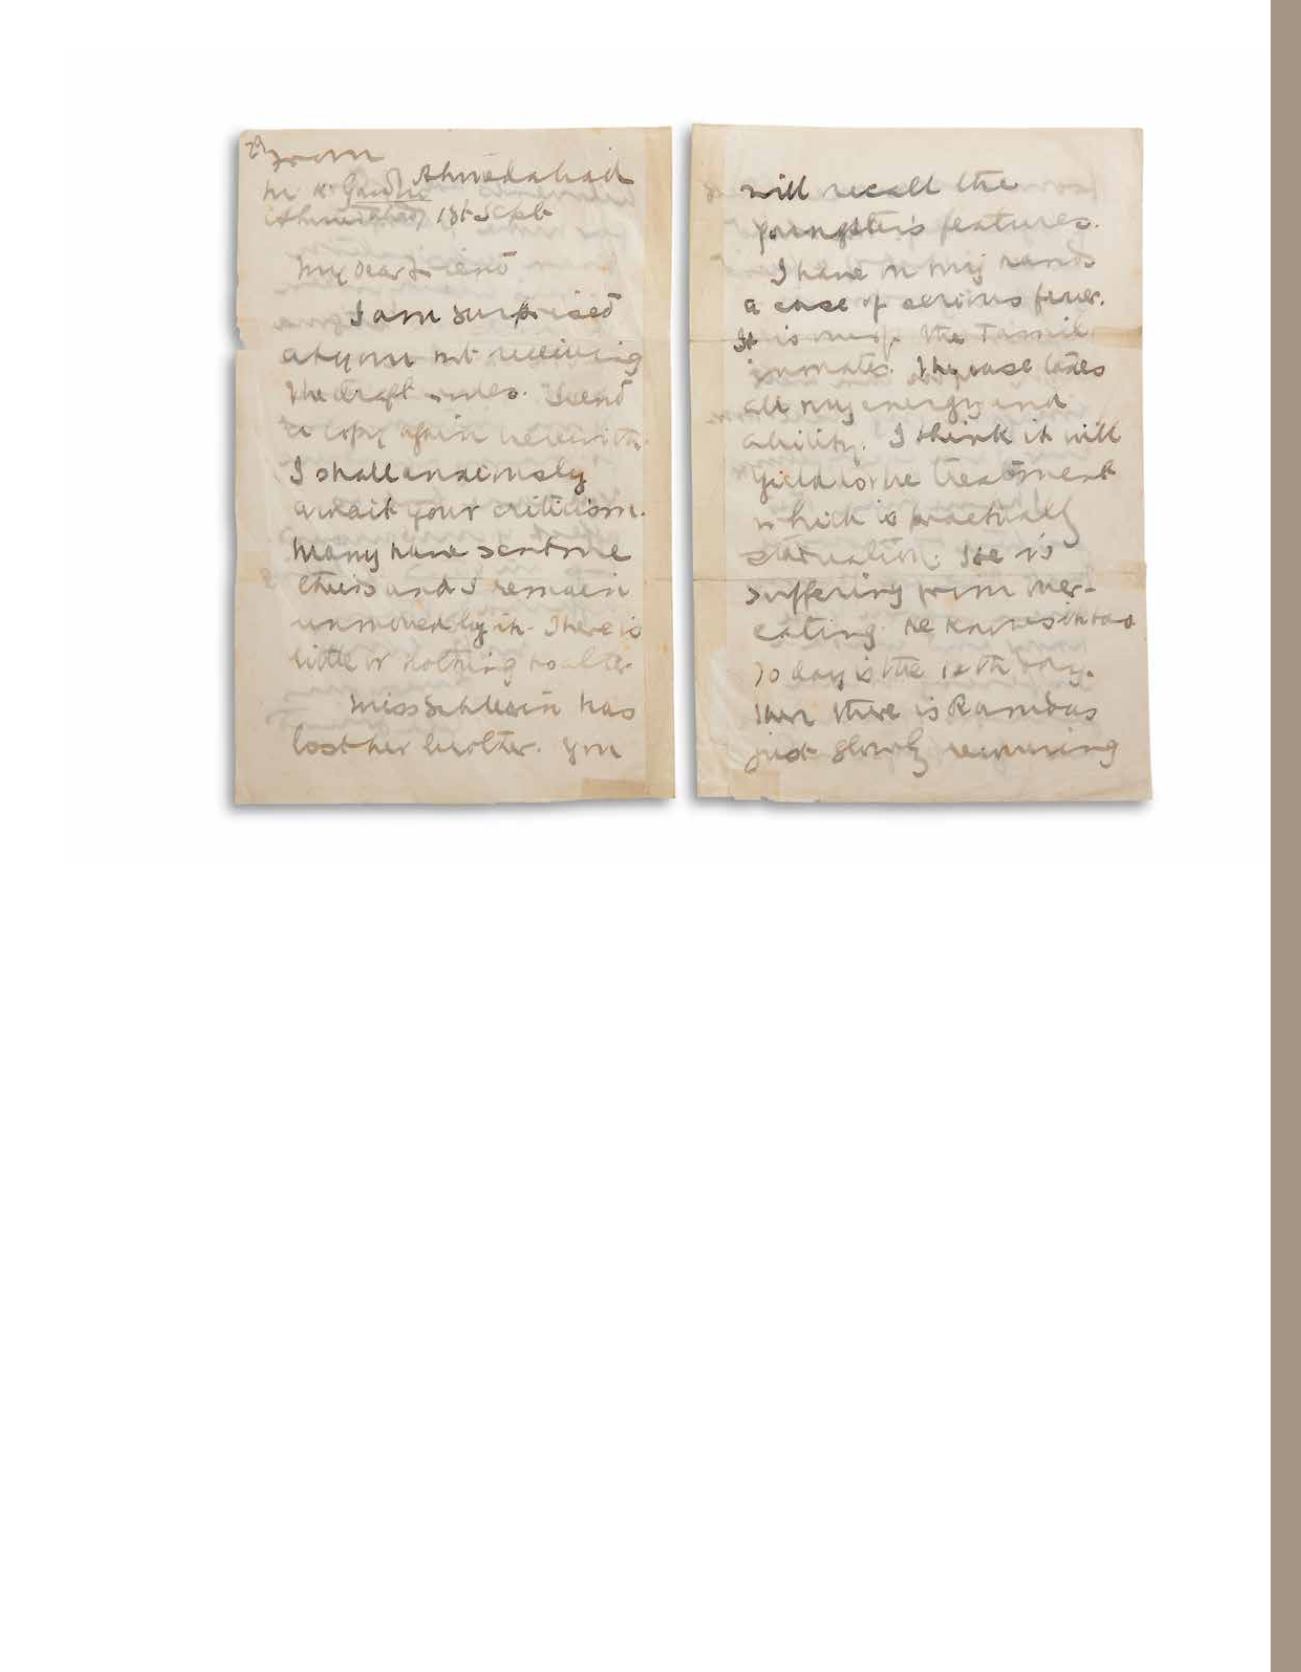 From
M. K. Gandhi
Ahmedabad
Ahmedabad
1st Sept
My dear friend
I am surprised
at your not receiving
the draft rules. I send
a copy again herewith.
I shall anxiously
await your criticism.
Many have sent me
theirs and I remain
unmoved by it. There is
little or nothing to alter.
Miss Schlesin has
lost her brother. You
will recall the
youngster's features.
I have on my hands
a case of serious fever.
It is one of the Tamil
inmates. The case takes
all my energy and
ability. I think it will
yield to the treatment
which is practically
starvation. He is
suffering from over-
eating. He knows it too
To day is the 12th day.
Then there is Ramdas
just slowly recovering